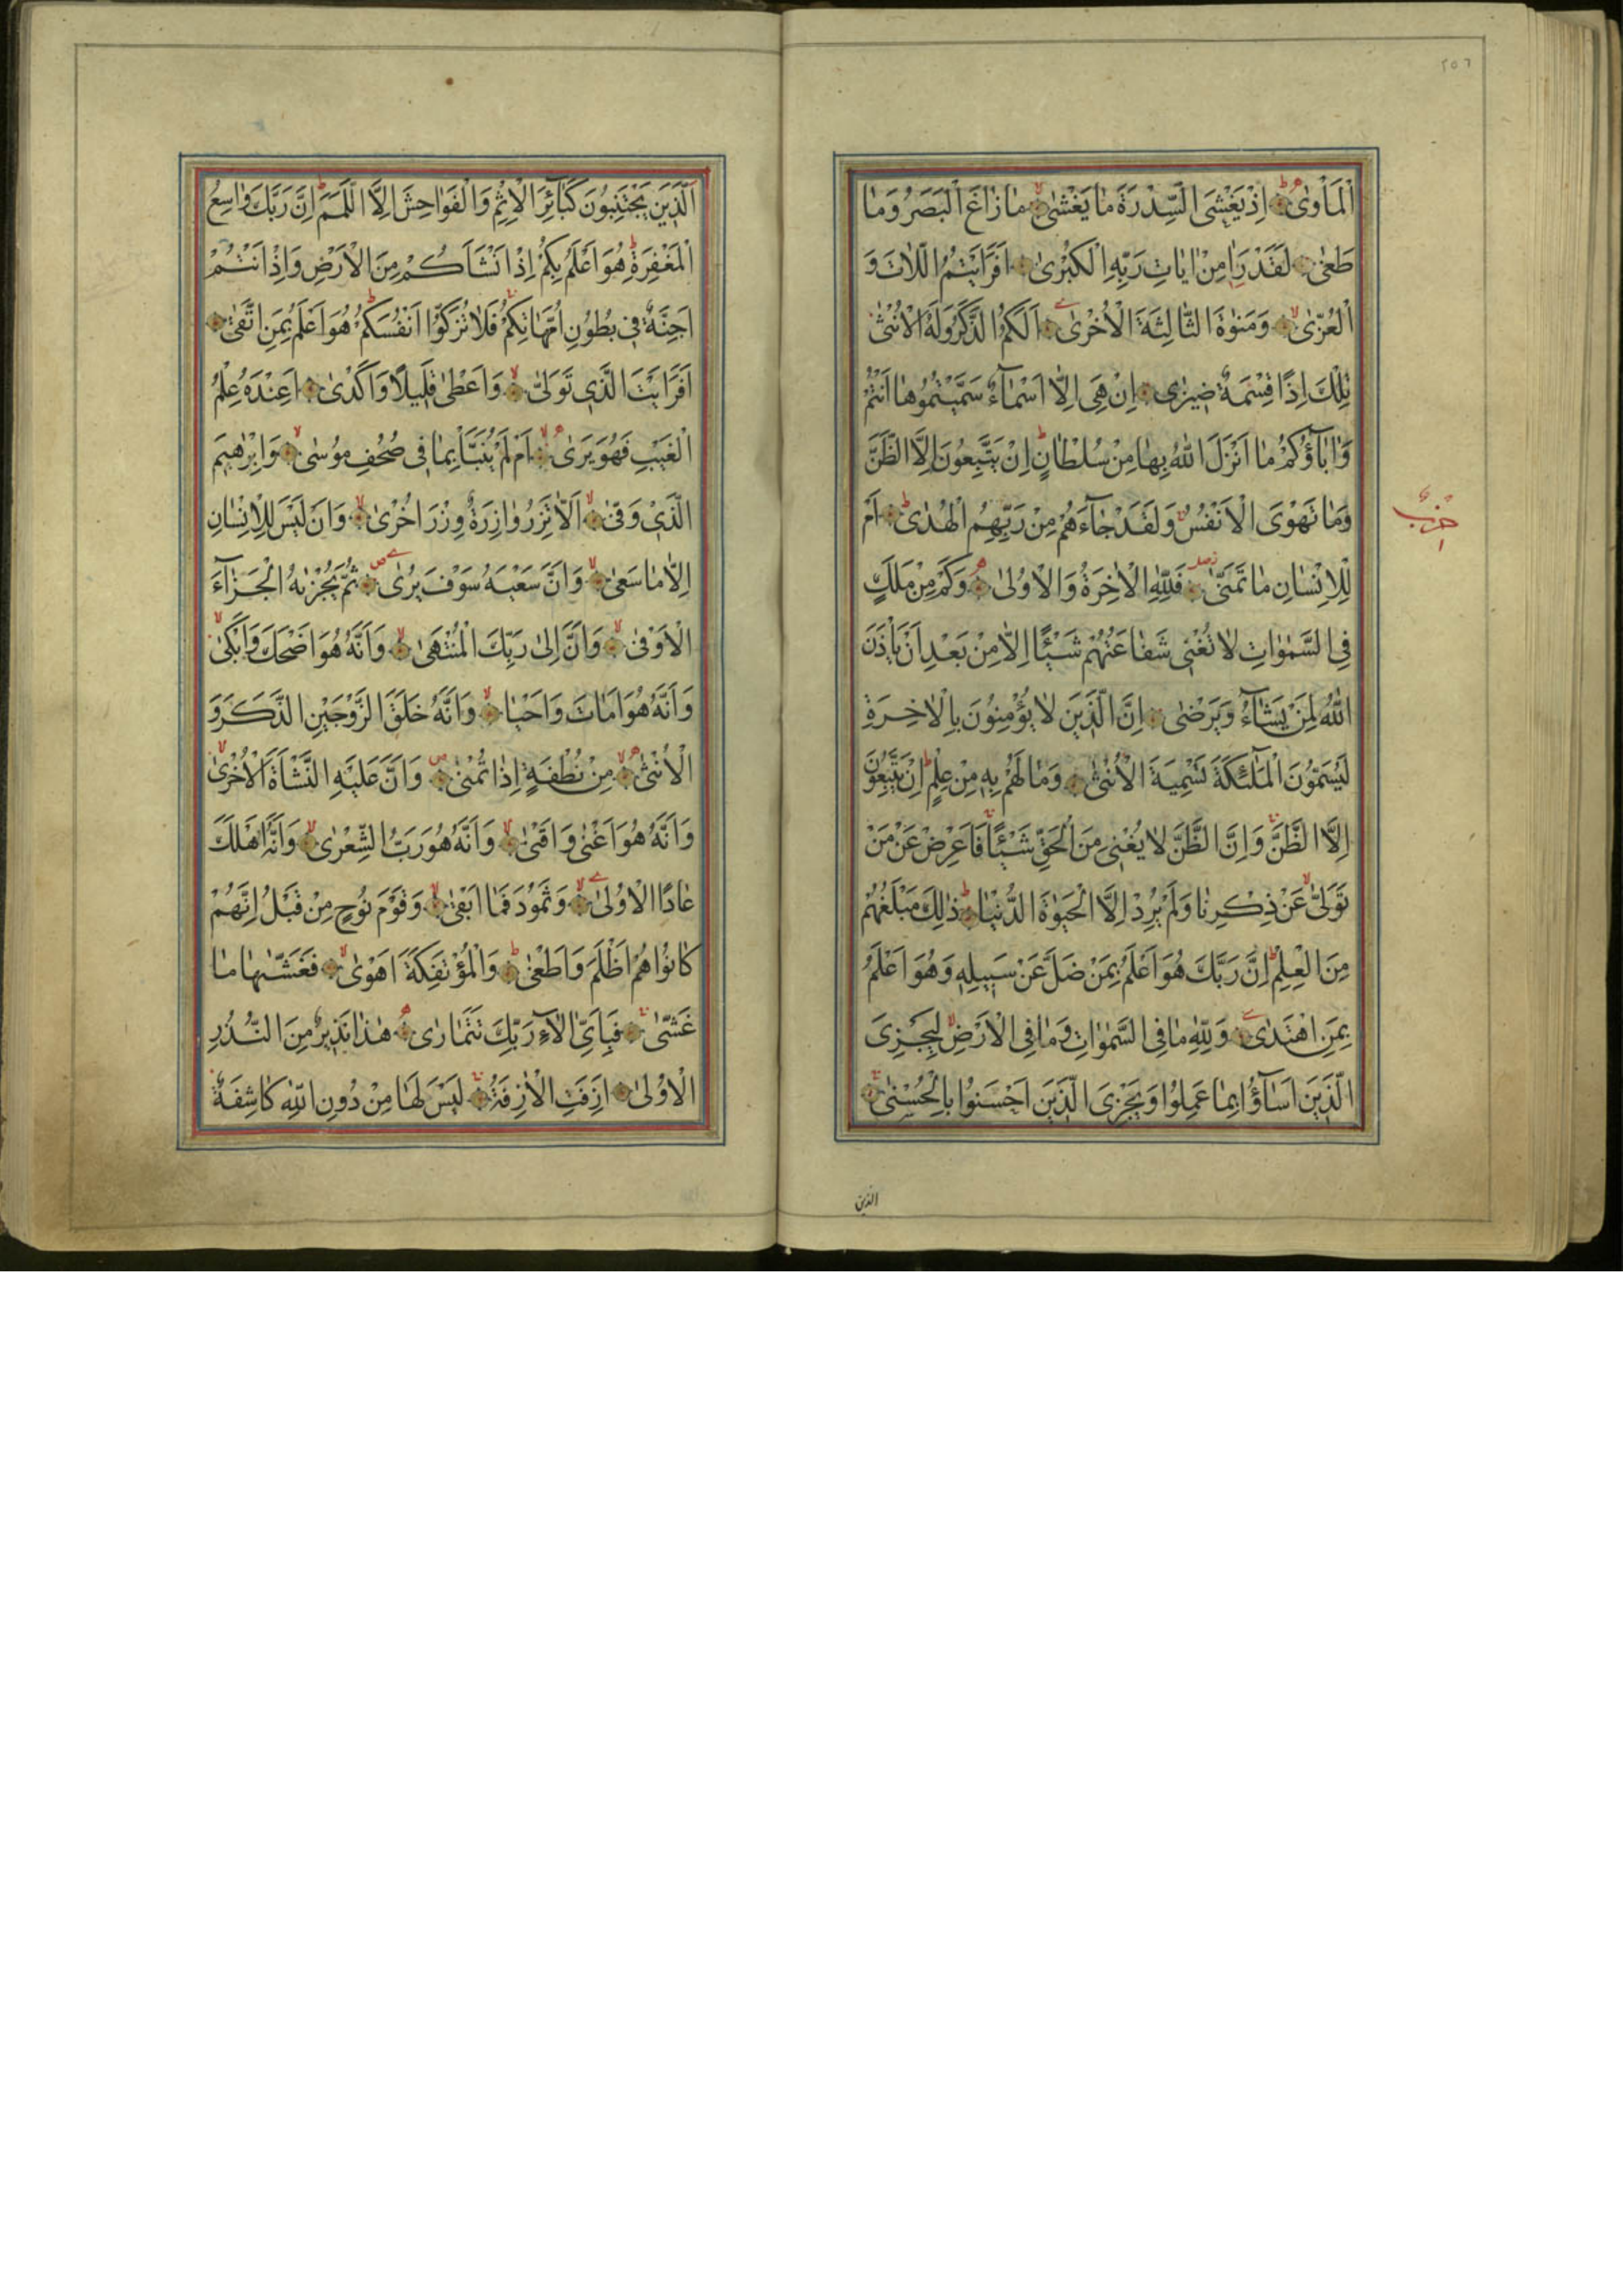 ٢٥٦
اَلْمَأْوٰىۜ اِذْ يَغْشَى السِّدْرَةَ مَا يَغْشٰىۙ مَا زَاغَ الْبَصَرُ وَمَا
طَغٰى لَقَدْ رَاٰ مِنْ اٰيَاتِ رَبِّهِ الْكُبْرٰى اَفَرَاَيْتُمُ اللَّاتَ وَ
الْعُزّٰىۙ وَمَنٰوةَ الثَّالِثَةَ الْاُخْرٰى اَلَكُمُ الذَّكَرُ وَلَهُ الْاُنْثٰى
تِلْكَ اِذًا قِسْمَةٌ ضِيزٰى اِنْ هِيَ اِلَّا اَسْمَاۤءٌ سَمَّيْتُمُوهَا اَنْتُمْ
وَاٰبَاۤؤُكُمْ مَا اَنْزَلَ اللّٰهُ بِهَا مِنْ سُلْطَانٍۜ اِنْ يَتَّبِعُونَ اِلَّا الظَّنَّ
وَمَا تَهْوَى الْاَنْفُسُۚ وَلَقَدْ جَاۤءَهُمْ مِنْ رَبِّهِمُ الْهُدٰىۜ اَمْ
حزب
لِلْاِنْسَانِ مَا تَمَنّٰى فَلِلّٰهِ الْاٰخِرَةُ وَالْاُولٰى وَكَمْ مِنْ مَلَكٍ
فِي السَّمٰوَاتِ لَا تُغْنِي شَفَاعَتُهُمْ شَيْـًٔا اِلَّا مِنْ بَعْدِ اَنْ يَأْذَنَ
اللّٰهُ لِمَنْ يَشَاۤءُ وَيَرْضٰى اِنَّ الَّذِينَ لَا يُؤْمِنُونَ بِالْاٰخِرَةِ
لَيُسَمُّونَ الْمَلٰۤئِكَةَ تَسْمِيَةَ الْاُنْثٰى وَمَا لَهُمْ بِهِ مِنْ عِلْمٍۜ اِنْ يَتَّبِعُونَ
اِلَّا الظَّنَّۚ وَاِنَّ الظَّنَّ لَا يُغْنِي مِنَ الْحَقِّ شَيْـًٔاۚ فَاَعْرِضْ عَنْ مَنْ
تَوَلّٰىۙ عَنْ ذِكْرِنَا وَلَمْ يُرِدْ اِلَّا الْحَيٰوةَ الدُّنْيَاۜ ذٰلِكَ مَبْلَغُهُمْ
مِنَ الْعِلْمِۜ اِنَّ رَبَّكَ هُوَ اَعْلَمُ بِمَنْ ضَلَّ عَنْ سَبِيلِهِ وَهُوَ اَعْلَمُ
بِمَنِ اهْتَدٰى وَلِلّٰهِ مَا فِي السَّمٰوَاتِ وَمَا فِي الْاَرْضِۙ لِيَجْزِيَ
الَّذِينَ اَسَاۤؤُا بِمَا عَمِلُوا وَيَجْزِيَ الَّذِينَ اَحْسَنُوا بِالْحُسْنٰىۚ
الذين
اَلَّذِينَ يَجْتَنِبُونَ كَبَاۤئِرَ الْاِثْمِ وَالْفَوَاحِشَ اِلَّا اللَّمَمَۜ اِنَّ رَبَّكَ وَاسِعُ
الْمَغْفِرَةِۜ هُوَ اَعْلَمُ بِكُمْ اِذْ اَنْشَاَكُمْ مِنَ الْاَرْضِ وَاِذْ اَنْتُمْ
اَجِنَّةٌ فِي بُطُونِ اُمَّهَاتِكُمْۚ فَلَا تُزَكّوُا اَنْفُسَكُمْۜ هُوَ اَعْلَمُ بِمَنِ اتَّقٰى
اَفَرَاَيْتَ الَّذِي تَوَلّٰىۙ وَاَعْطٰى قَلِيلًا وَاَكْدٰى اَعِنْدَهُ عِلْمُ
الْغَيْبِ فَهُوَ يَرٰى اَمْ لَمْ يُنَبَّأْ بِمَا فِي صُحُفِ مُوسٰىۙ وَاِبْرٰهِيمَ
الَّذِي وَفّٰىۙ اَلَّا تَزِرُ وَازِرَةٌ وِزْرَ اُخْرٰىۙ وَاَنْ لَيْسَ لِلْاِنْسَانِ
اِلَّا مَا سَعٰىۙ وَاَنَّ سَعْيَهُ سَوْفَ يُرٰى ثُمَّ يُجْزٰيهُ الْجَزَاۤءَ
الْاَوْفٰىۙ وَاَنَّ اِلٰى رَبِّكَ الْمُنْتَهٰىۙ وَاَنَّهُ هُوَ اَضْحَكَ وَاَبْكٰىۙ
وَاَنَّهُ هُوَ اَمَاتَ وَاَحْيَاۙ وَاَنَّهُ خَلَقَ الزَّوْجَيْنِ الذَّكَرَ وَ
الْاُنْثٰىۙ مِنْ نُطْفَةٍ اِذَا تُمْنٰى وَاَنَّ عَلَيْهِ النَّشْاَةَ الْاُخْرٰىۙ
وَاَنَّهُ هُوَ اَغْنٰى وَاَقْنٰىۙ وَاَنَّهُ هُوَ رَبُّ الشِّعْرٰىۙ وَاَنَّهُ اَهْلَكَ
عَادًا الْاُولٰىۙ وَثَمُودَ فَمَا اَبْقٰىۙ وَقَوْمَ نُوحٍ مِنْ قَبْلُ اِنَّهُمْ
كَانُوا هُمْ اَظْلَمَ وَاَطْغٰىۜ وَالْمُؤْتَفِكَةَ اَهْوٰىۙ فَغَشّٰيهَا مَا
غَشّٰىۚ فَبِاَيِّ اٰلَاۤءِ رَبِّكَ تَتَمَارٰى هٰذَا نَذِيرٌ مِنَ النُّذُرِ
الْاُولٰى اَزِفَتِ الْاٰزِفَةُۚ لَيْسَ لَهَا مِنْ دُونِ اللّٰهِ كَاشِفَةٌ